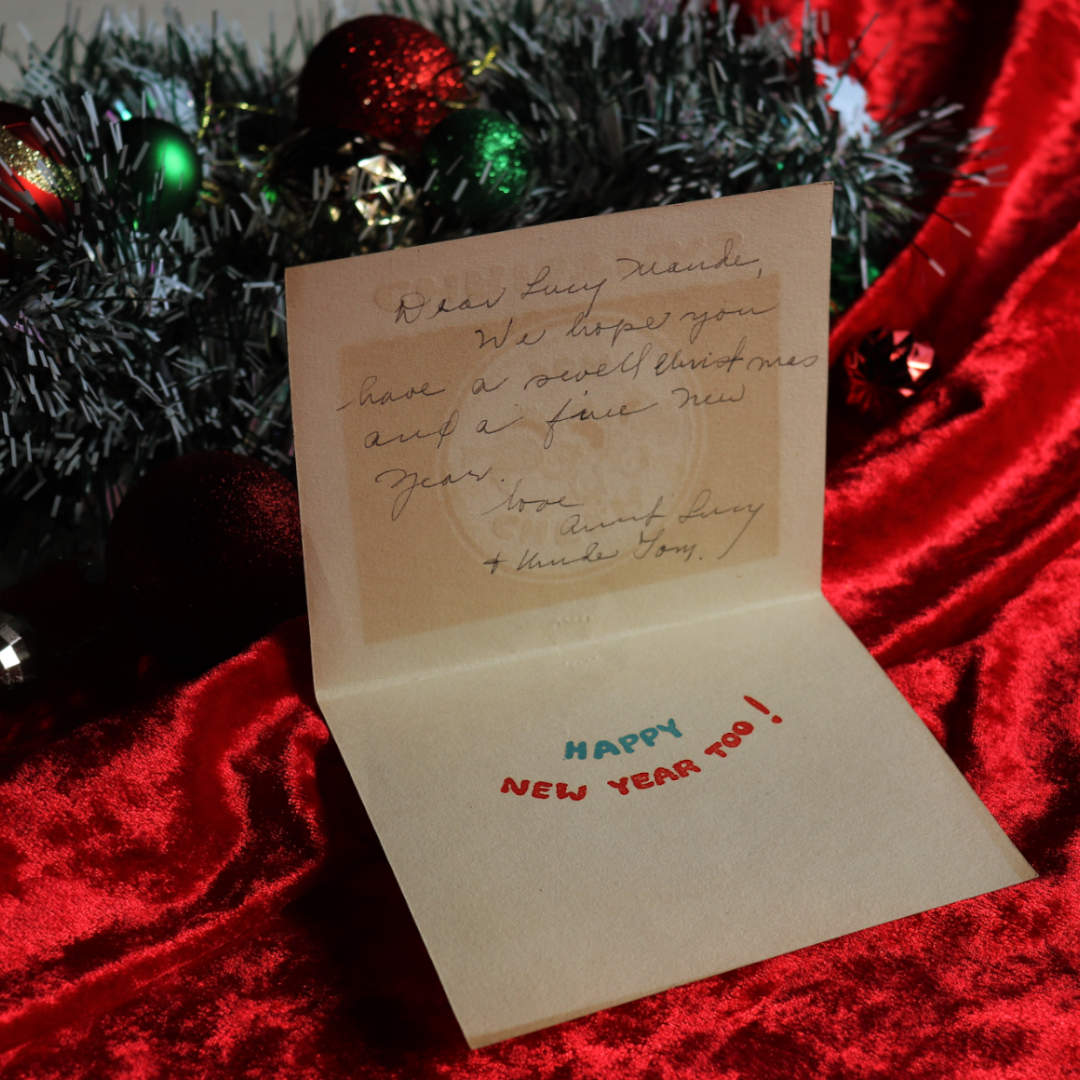 Dear Lucy Maude,
We hope you
have a swell Christmas
and a fine New
Year.
love
Aunt Lucy
+ Uncle Tom.
HAPPY
NEW YEAR TOO!